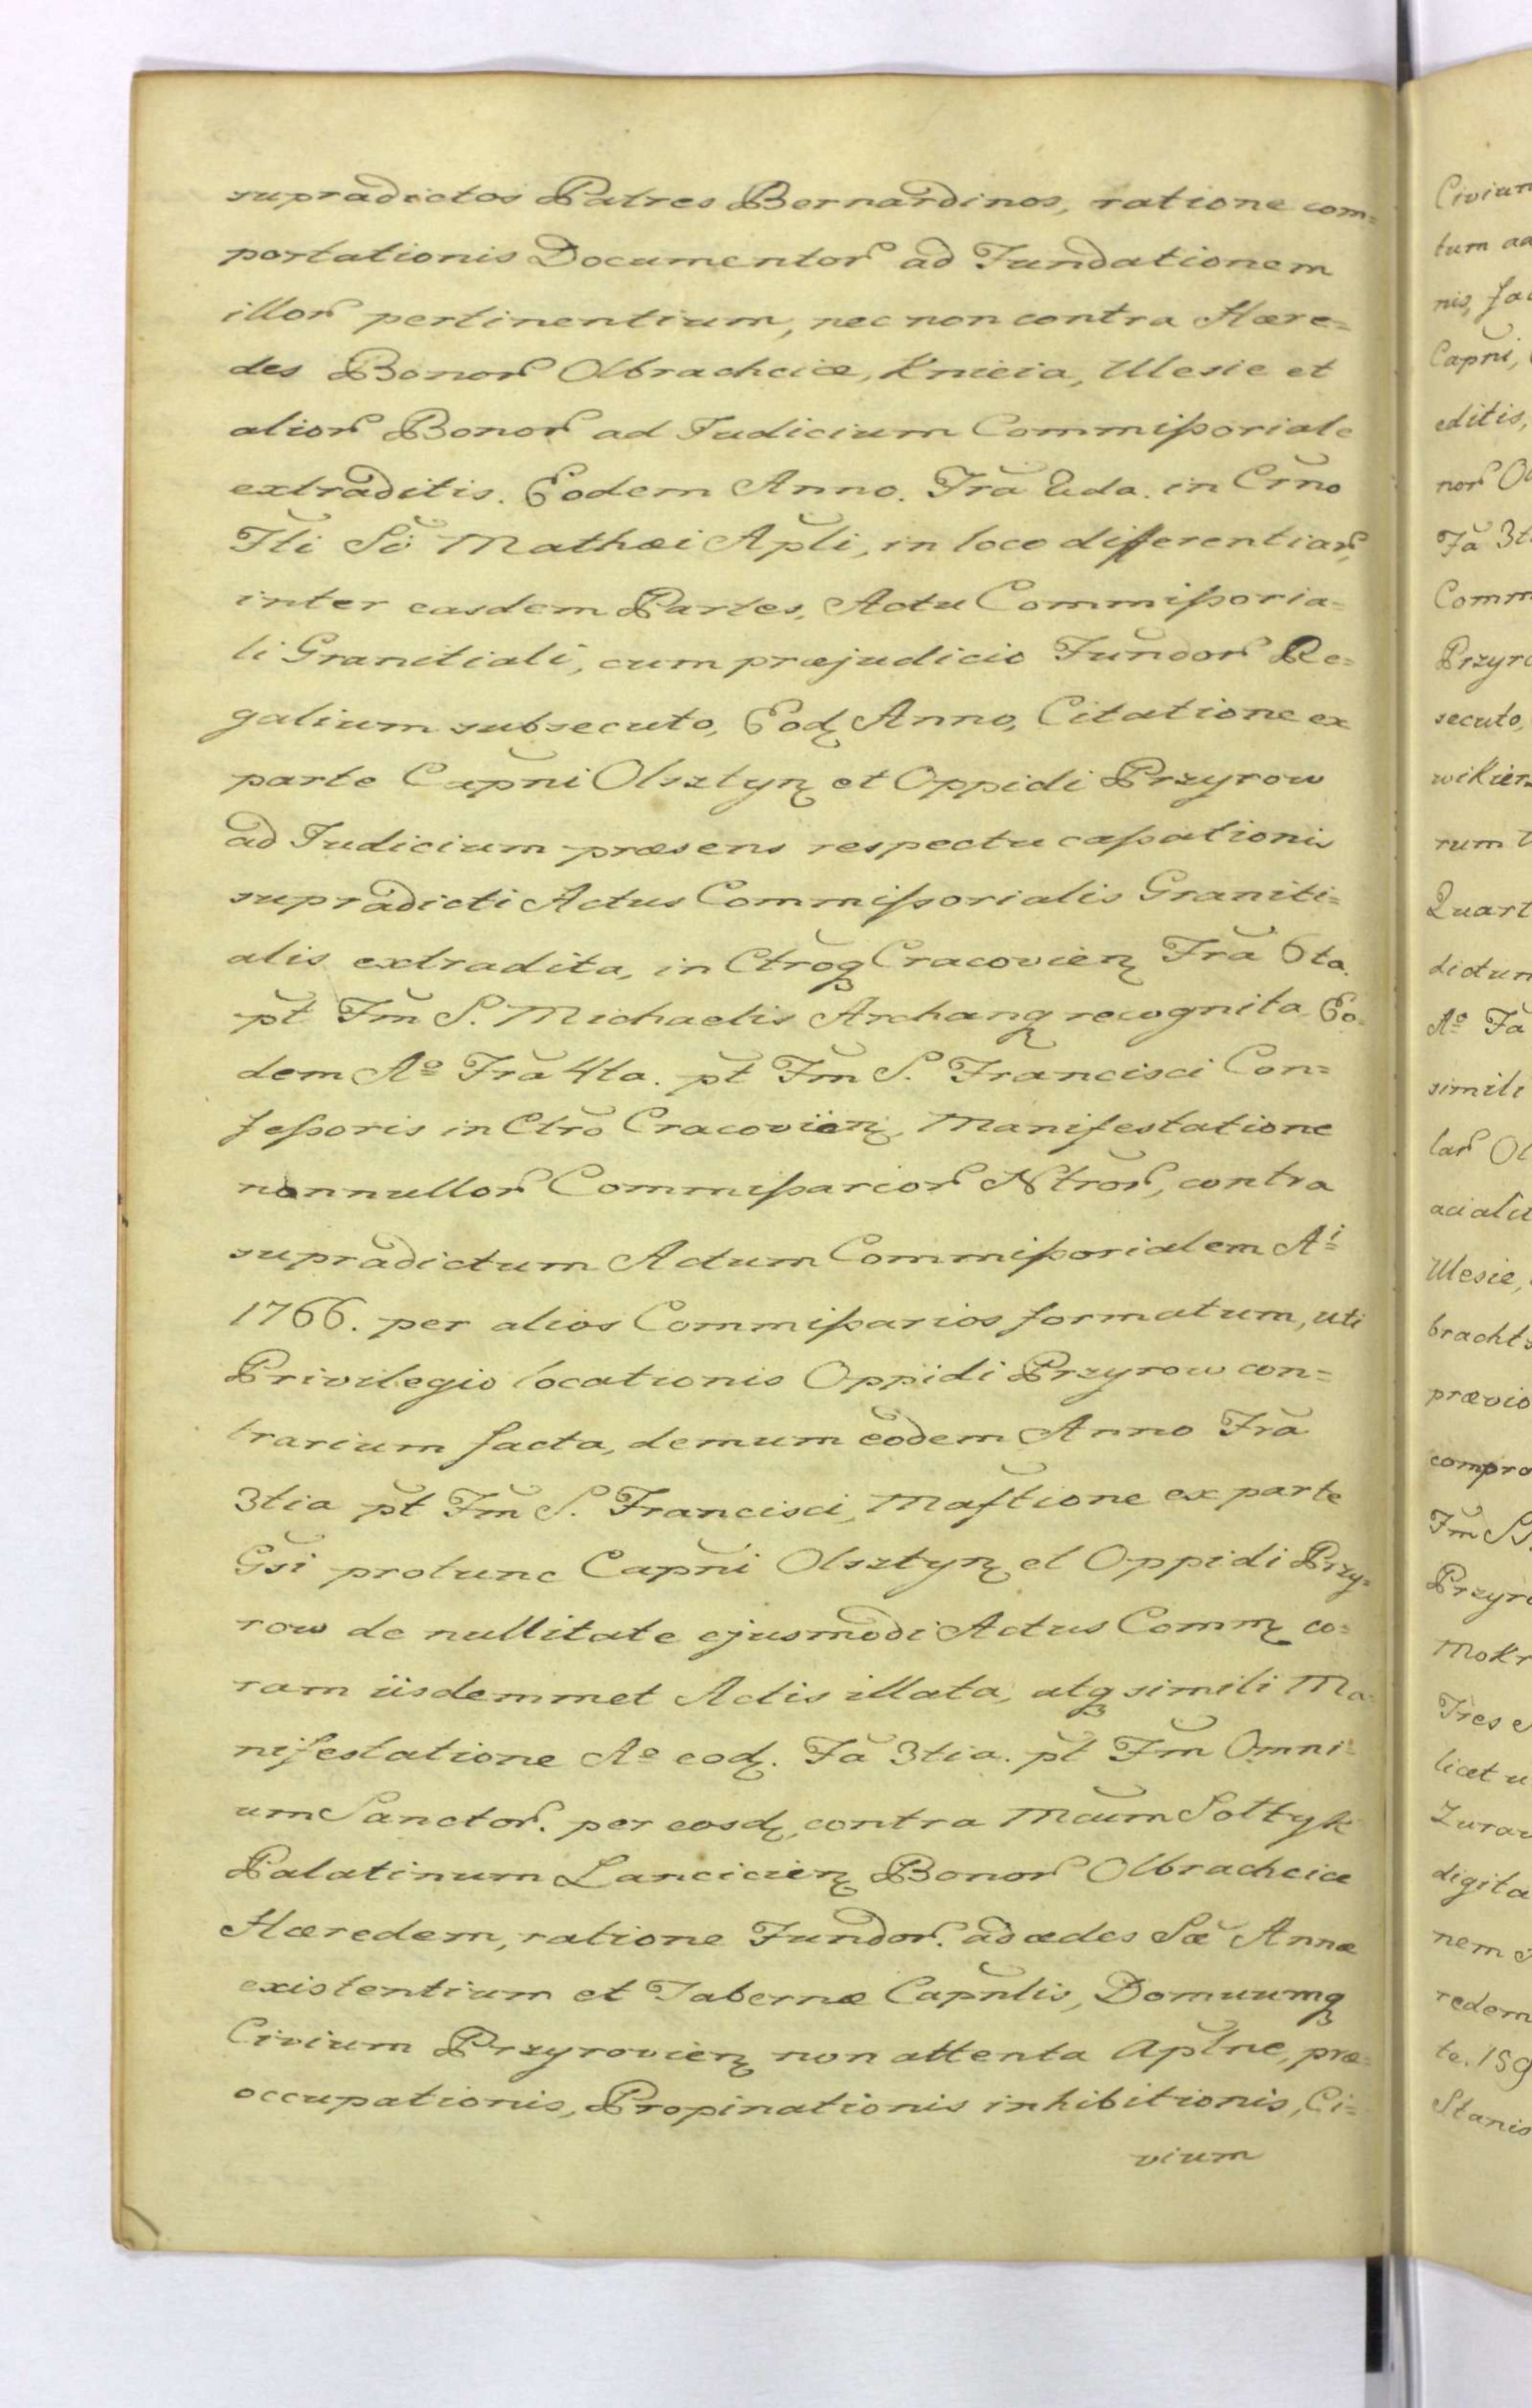 supradictos Patres Bernardinos, ratione com=
portationis Documentor̃ ad Fundationem
illor̃ pertinentium, nec non contra Hære=
des Bonor̃ Olbrachcice, Knieia, Ulesie et
alior̃ Bonor̃ ad Judicium Commiſsoriale
extraditis. Eodem Anno. Fr̃a 2da. in Cr̃no
Fti Sõ Mathæi Apl̃i, in loco differentiar̃,
inter easdem Partes, Actu Commiſsoria=
li Granitiali, cum præjudicio Fundor̃ Re=
galium subsecuto, Eodꝫ Anno, Citatione ex
parte Capñi Olsztynꝫ et Oppidi Przyrow
ad Judicium præsens respectu caſsationis
supradicti Actus Commiſsorialis Graniti=
alis extradita, in Ctrõqꝫ Cracovienꝫ Fr̃a 6ta.
p̃t Fm̃ S. Michaelis Archangꝫ recognita. Eo=
dem Aº Fr̃a 4ta. p̃t Fm̃ S. Francisci Con=
feſsoris in Ctrõ Cracovienꝫ, Manifestatione
nonnullor̃ Commiſsarior̃ Ntror̃, contra
supradictum Actum Commiſsorialem Aⁱ
1766. per alios Commiſsarios formatum, uti
Privilegio locationis Oppidi Przyrow con=
trarium facta, demum eodem Anno Fr̃a
3tia p̃t Fm̃ S. Francisci, Maſt̃ione ex parte
Gs̃i protunc Capñi Olsztynꝫ et Oppidi Przy=
row de nullitate ejusmodi Actus Commꝫ co=
ram iisdemmet Actis illata, atqꝫ simili Ma=
nifestatione Aº eodꝫ. Fã 3tia. p̃t Fm̃ Omni=
um Sanctor̃. per eosdꝫ, contra Mcũm Sołtyk
Palatinum Lancicienꝫ Bonor̃ Olbrachcice
Hæredem, ratione Fundor̃. ad ædes Sæ̃ Annæ
existentium et Tabernæ Capñlis, Domuumqꝫ
Civium Przyrovienꝫ non attenta Apl̃ne, præ=
occupationis, Propinationis inhibitionis, Ci=
vium
Civium
tum ad
nis, fac
Capñi,
editis,
nor̃ Ol
Fã 3ti
Comm
Przyro
secuto,
wikien
rum
Quart
dictum
Aº Fã
simili
lar̃ Ol
aciali
Ulesie,
bracht
prævio
compro
Fm̃ SS.
Przyro
Mokr
Tres e
licet u
Zuraw
digita
nem
redem
te. 159
Stanis